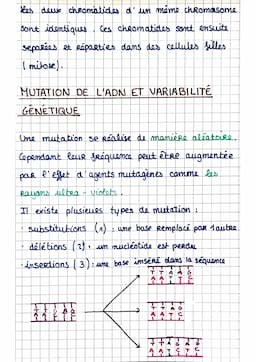 Les deux chromatides d'un même chromosome
sont identiques. Ces chromatides sont ensuite
séparées et réparties dans des cellules filles
(mitose).
MUTATION DE L'ADN ET VARIABILITÉ
GÉNÉTIQUE
Une mutation se réalise de manière aléatoire.
Cependant leur fréquence peut être augmentée
par l'effet d'agents mutagènes comme les
rayons ultra-violets.
Il existe plusieurs types de mutation :
• substitutions (1) : une base remplacé par 1 autre
• délétions (2) : un nucléotide est perdu
• insertions (3) : une base inséré dans la séquence